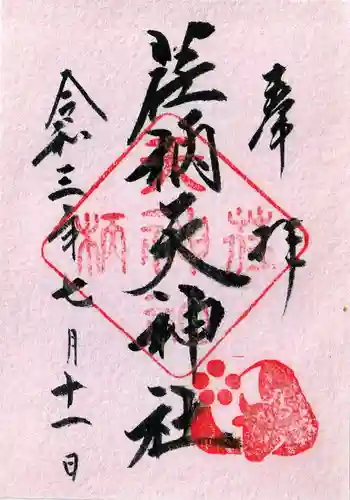 奉拝
荏柄天神社
令和三年七月十一日
荏柄
天神
社